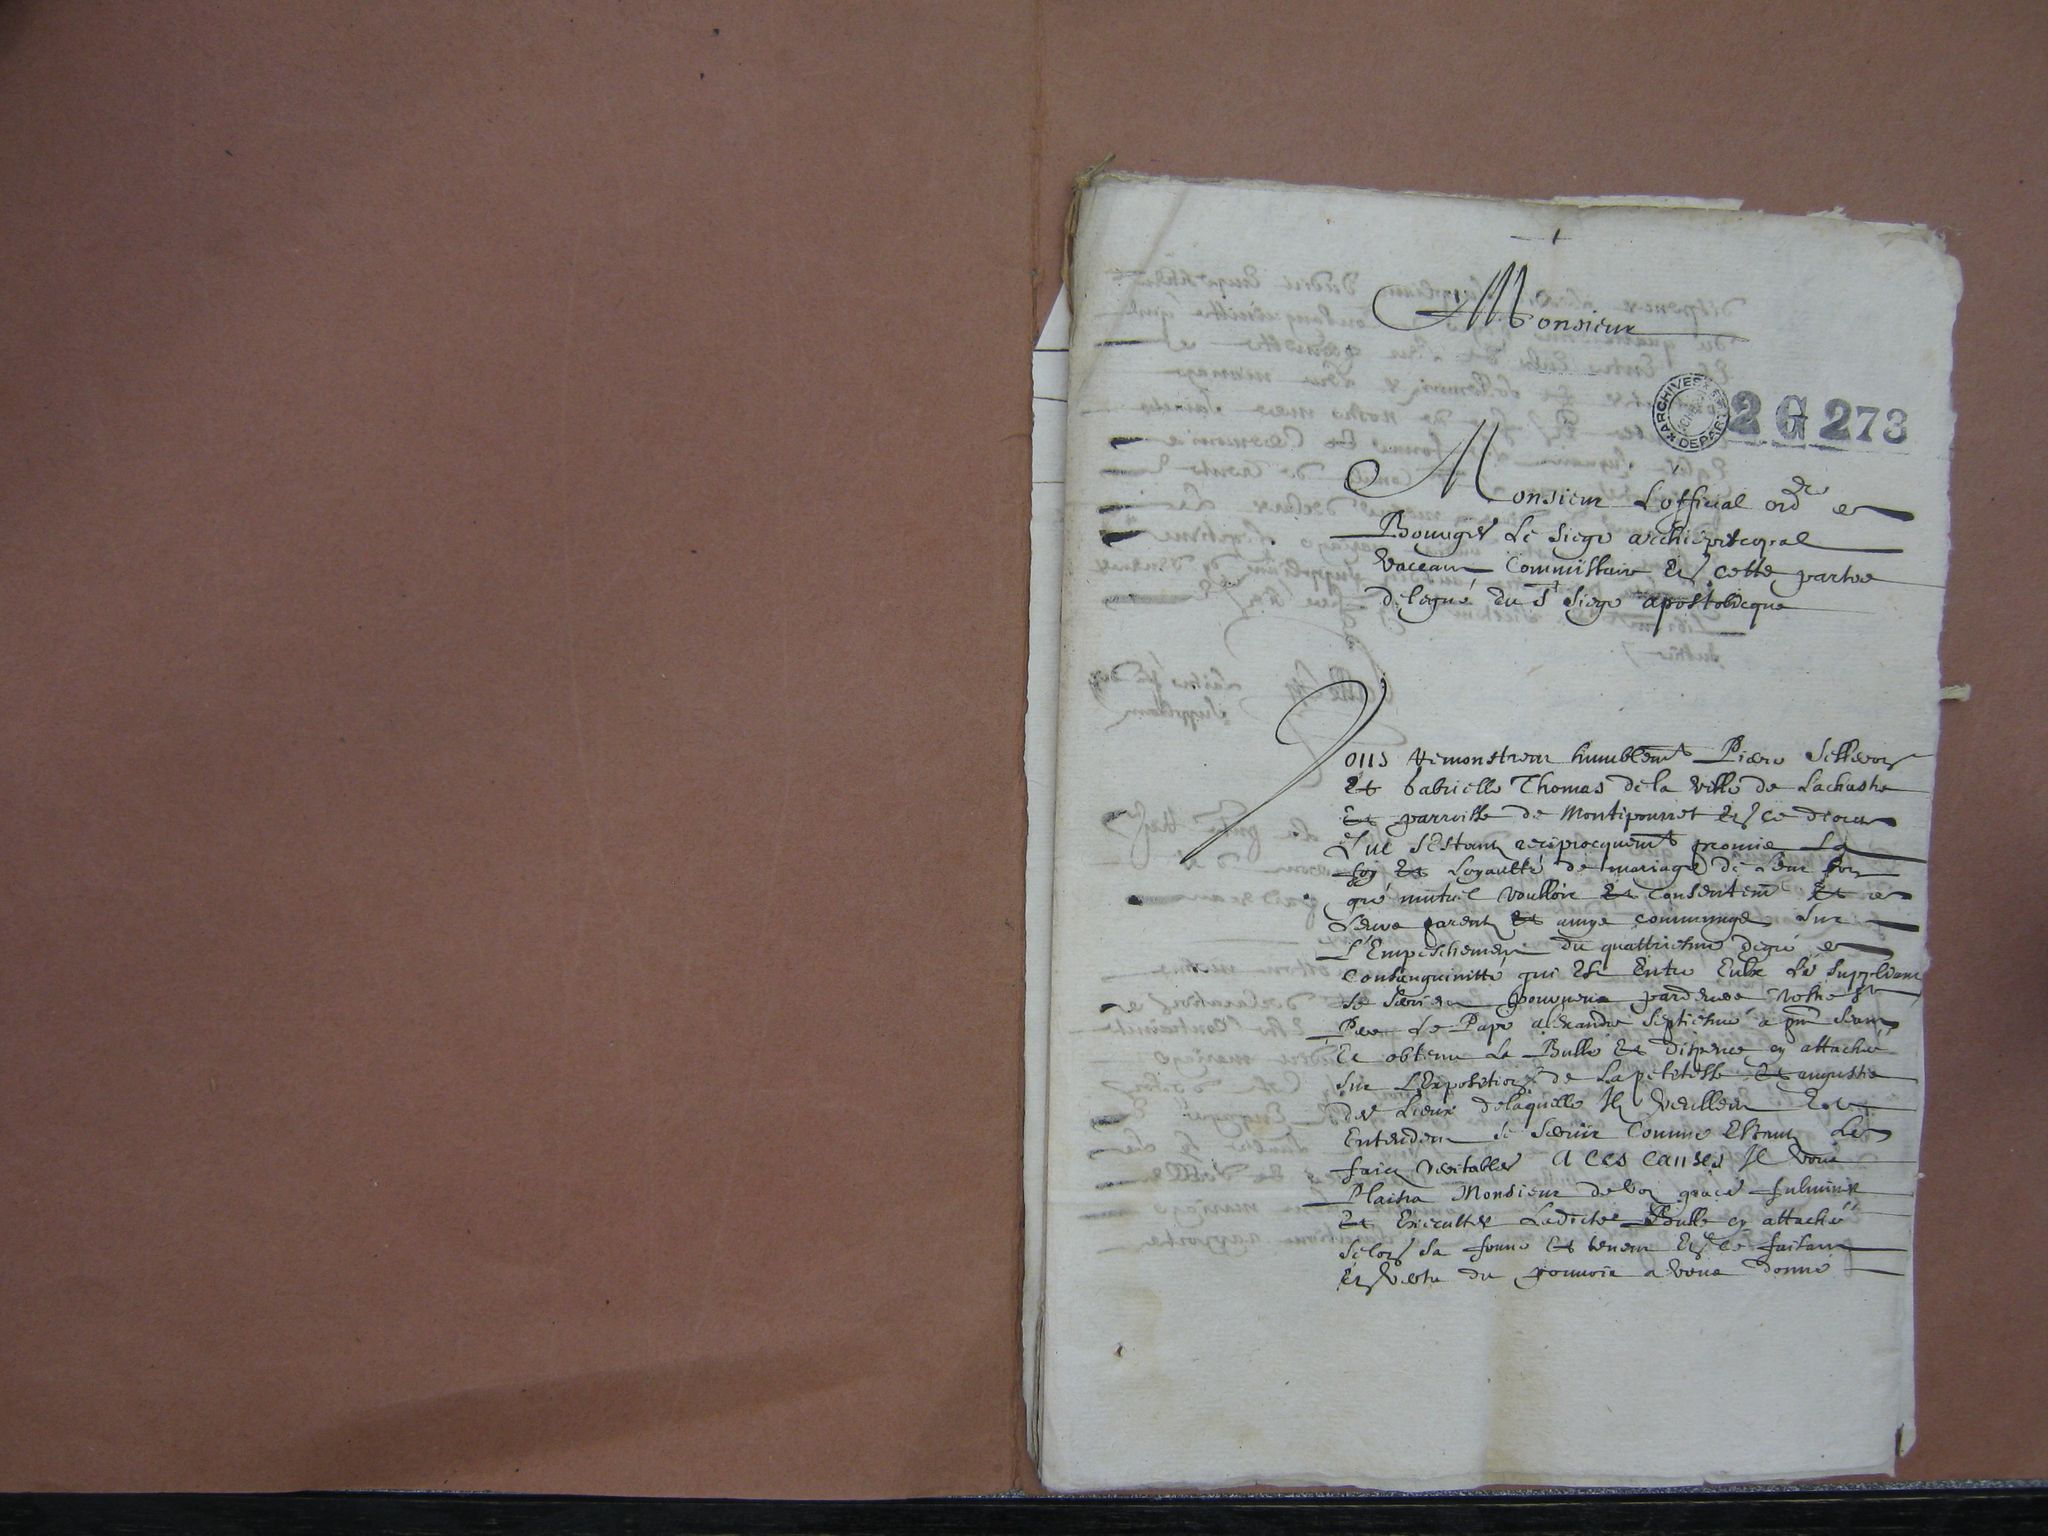 Monsieur
ARCHIVES DEPART
2 G 273
Monsieur Lofficial ordre de
Bourges Le siege archiepiscopal
vaccant Commissaire En cette partie
delegué du St Siege apostolicque
Vous Remonstrent humblemt Pierre
Et Gabrielle Thomas de la ville de Lachastre
Et parroisse de Montipouret En ce dioceze
Que s'Estant reciprocquemt promis La
foy Et Loyaulté de mariage de Leur bon
gré mutuel voulloir Et Consentemt Et de
Leurs parens Et amys communs Sur
L'Empeschement du quattriesme degré de
Consanguinitté qui Est Entre Eulx Les supplians
se seroient pourveus pardevers nostre St
Pere Le Pape alexandre septiesme a pnt seant
Et obtenu La Bulle Et dispence cy attachée
sur L'Exposition de La petitesse Et angustie
des Lieux de laquelle Ils veullent Et
Entendent se servir Comme Estant Les
faicts veritables A ces causes Il vous
Plaira Monsieur de voz graces fulminer
Et Executter Ladicte Bulle cy attachée
selon sa forme Et teneur Et ce faisant
En vertu du pouvoir a vous donné